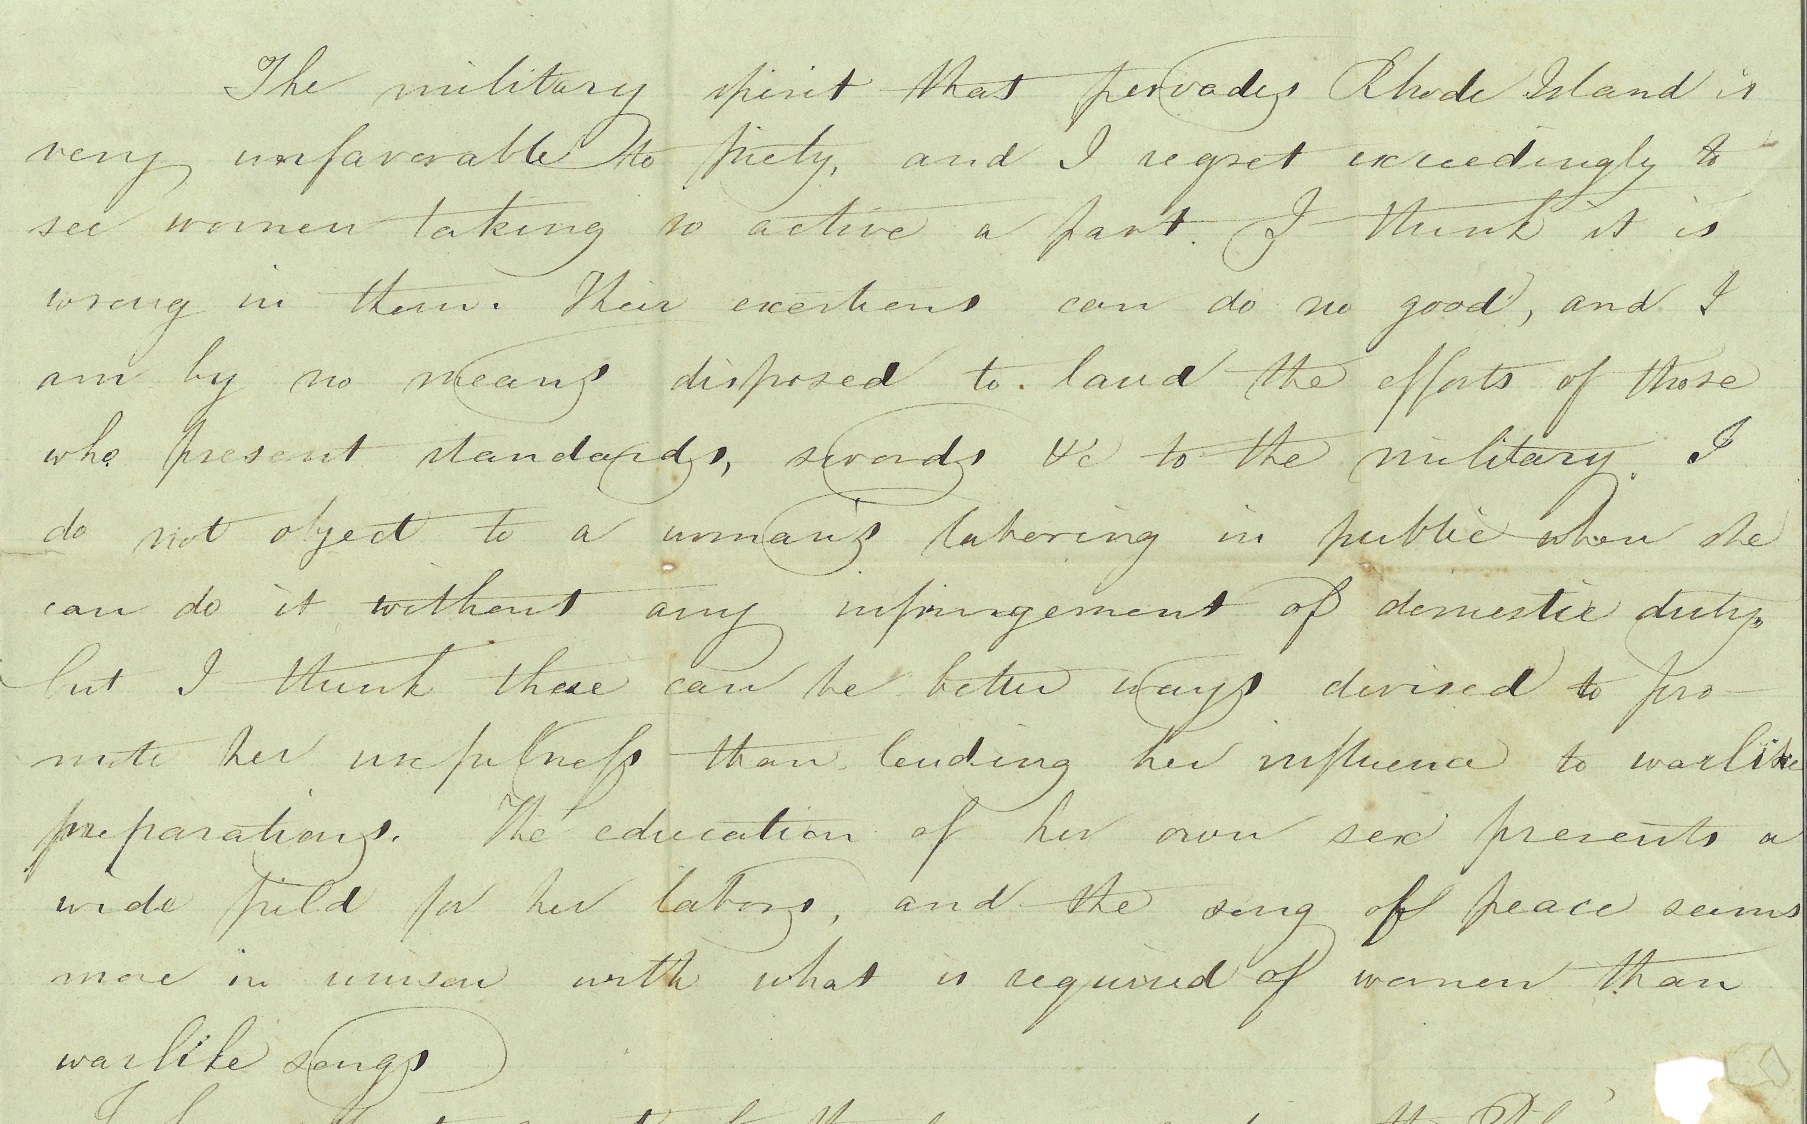 The military spirit that pervades Rhode Island is
very unfavorable to piety, and I regret exceedingly to
see women taking so active a part. I think it is
wrong in them. Their exertions can do no good, and I
am by no means disposed to laud the efforts of those
who present standards, swords &c to the military. I
do not object to a woman's laboring in public when she
can do it without any infringement of domestic duty,
but I think there can be better ways devised to pro-
mote her usefulness than lending her influence to warlike
preparations. The education of her own sex presents a
wide field for her labors, and the song of peace seems
more in unison with what is required of women than
warlike songs